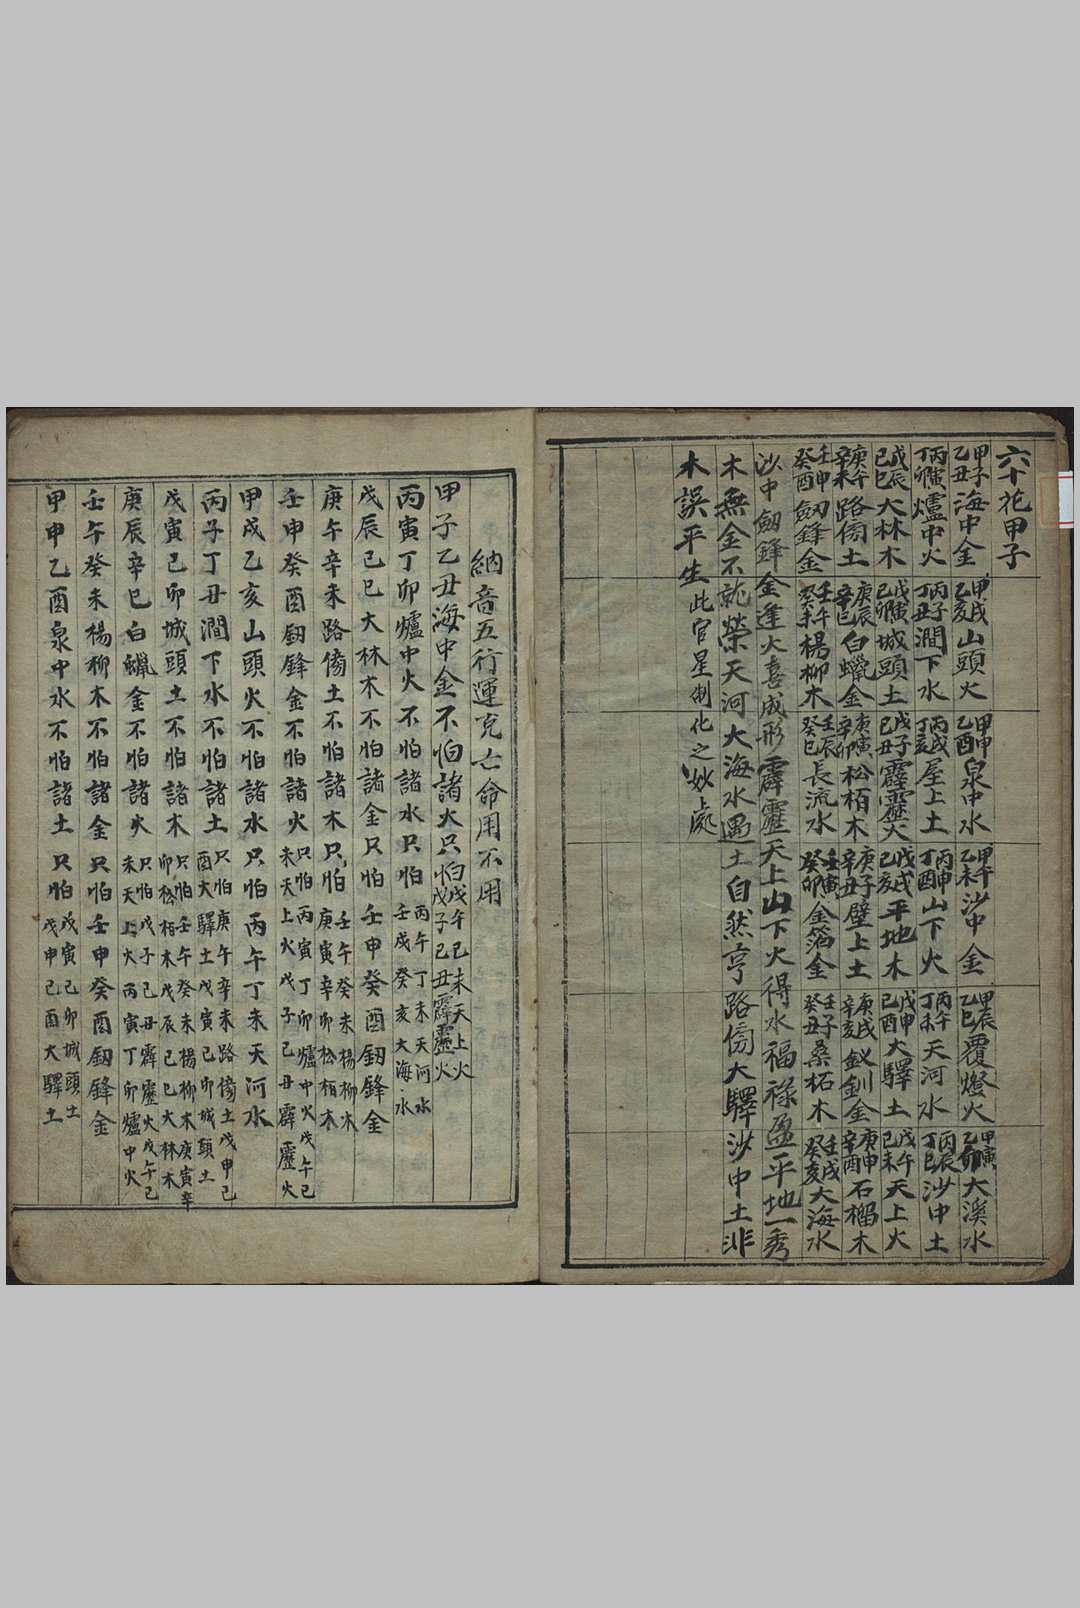 六十花甲子
甲子乙丑海中金 甲戌乙亥山頭火 甲申乙酉泉中水 甲午乙未沙中金 甲辰乙巳覆燈火 甲寅乙卯大溪水
丙寅丁卯爐中火 丙子丁丑澗下水 丙戌丁亥屋上土 丙申丁酉山下火 丙午丁未天河水 丙辰丁巳沙中土
戊辰己巳大林木 戊寅己卯城頭土 戊子己丑霹靂火 戊戌己亥平地木 戊申己酉大驛土 戊午己未天上火
庚午辛未路傍土 庚辰辛巳白蠟金 庚寅辛卯松栢木 庚子辛丑壁上土 庚戌辛亥釵釧金 庚申辛酉石榴木
壬申癸酉劔鋒金 壬午癸未楊柳木 壬辰癸巳長流水 壬寅癸卯金箔金 壬子癸丑桑柘木 壬戌癸亥大海水
沙中劔鋒金逢火喜成形霹靂天上山下火得水福祿盈平地一秀
木無金不就榮天河大海水遇土自然亨路傍大驛沙中土非
木誤平生此官星制化之妙處
納音五行運克亡命用不用
甲子乙丑海中金不怕諸火只怕戊午己未天上火戊子己丑霹靂火
丙寅丁卯爐中火不怕諸水只怕丙午丁未天河水壬戌癸亥大海水
戊辰己巳大林木不怕諸金只怕壬申癸酉劔鋒金
庚午辛未路傍土不怕諸木只怕壬午癸未楊柳木庚寅辛卯松栢木
壬申癸酉劔鋒金不怕諸火只怕丙寅丁卯爐中火戊午己未天上火戊子己丑霹靂火
甲戌乙亥山頭火不怕諸水只怕丙午丁未天河水
丙子丁丑澗下水不怕諸土只怕庚午辛未路傍土戊申己酉大驛土戊寅己卯城頭土
戊寅己卯城頭土不怕諸木只怕壬午癸未楊柳木庚寅辛卯松栢木戊辰己巳大林木
庚辰辛巳白蠟金不怕諸火只怕戊子己丑霹靂火戊午己未天上火丙寅丁卯爐中火
壬午癸未楊柳木不怕諸金只怕壬申癸酉劔鋒金
甲申乙酉泉中水不怕諸土只怕戊寅己卯城頭土戊申己酉大驛土